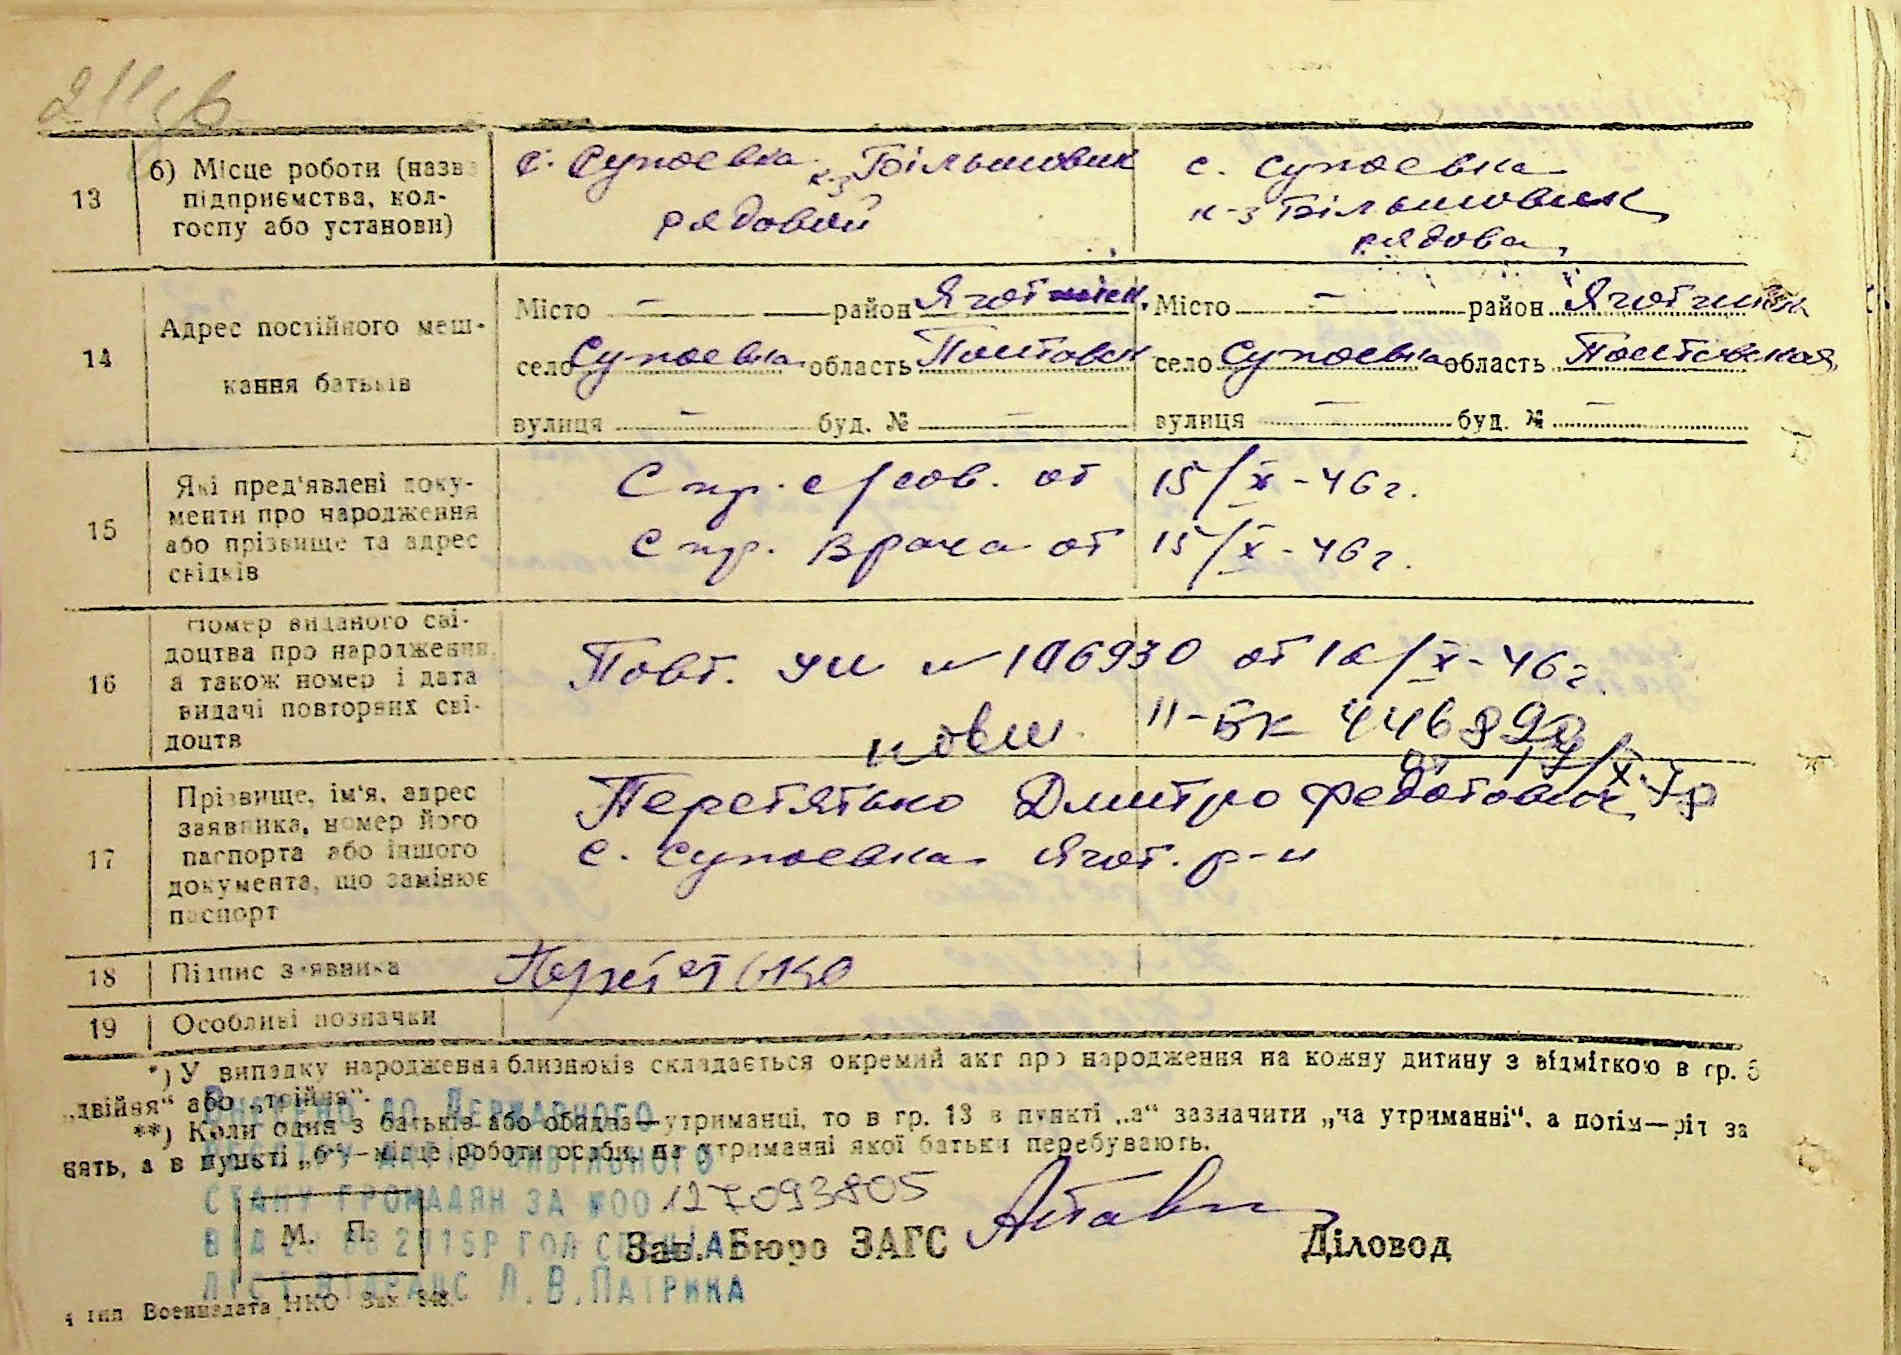 13
б) Місце роботи (назва
підприємства, кол-
госпу або установи)
с. Супоевка к-з Більшовик
рядовой
с. Супоевка
к-з Більшовик
рядова
14
Адрес постійного меш-
кання батьків
Місто — район Яготинск.
село Супоевка область Полтовск
вулиця — буд. № —
Місто — район Яготинск
село Супоевка область Полтовская
вулиця — буд. № —
15
Які пред'явлені доку-
менти про народження
або прізвище та адрес
свідків
Спр. с/сов. от 15/X-46 г.
Спр. врача от 15/X-46 г.
16
Номер виданого сві-
доцтва про народження,
а також номер і дата
видачі повторних сві-
доцтв
Повт. УИ № 106930 от 16/X-46 г.
II-БК
17
Прізвище, ім'я, адрес
заявника, номер його
паспорта або іншого
документа, що замінює
паспорт
Перетятько Дмитро Федотович
с. Супоевка Ягот. р-н
18
Підпис заявника
Перетятько
19
Особливі позначки
*) У випадку народження близнюків складається окремий акт про народження на кожну дитину з відміткою в гр. 5
„двійня“ або „трійня“.
**) Коли один з батьків або обидва—утриманці, то в гр. 13 в пункті „а“ зазначити „на утриманні“, а потім—рід за
нять, а в пункті „б“—місце роботи особи, на утриманні якої батьки перебувають.
ВНЕСЕНО ДО ДЕРЖАВНОГО
РЕЄСТРУ АКТІВ ЦИВІЛЬНОГО
СТАНУ ГРОМАДЯН ЗА №00 127093805
ВІД 2015Р ГОЛ СПЕЦІА
ЛІСТ ВДРАЦС Л.В.ПАТРИКА
М. П.
Зав. Бюро ЗАГС
Діловод
4 тип Военшадата НКО Зак. 848.